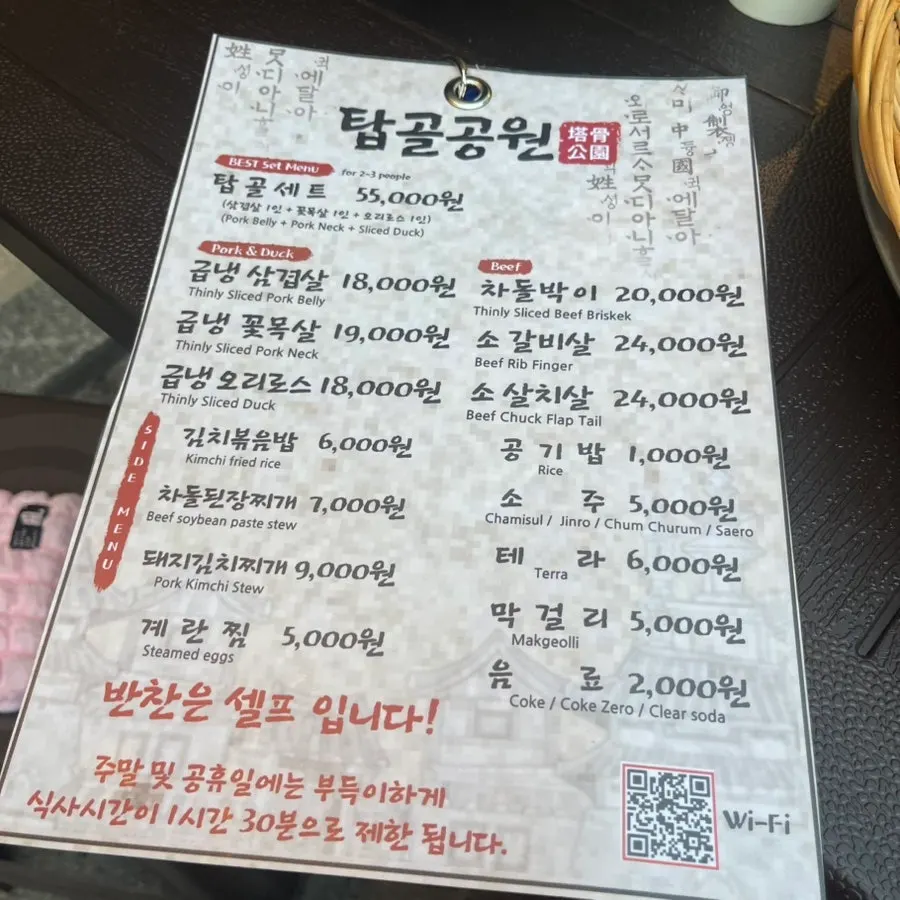 탑골공원
塔骨
公園
BEST Set Menu for 2-3 people
탑골세트 55,000원
(삼겹살 1인 + 꽃목살 1인 + 오리로스 1인)
(Pork Belly + Pork Neck + Sliced Duck)
Pork & Duck
급냉 삼겹살 18,000원
Thinly Sliced Pork Belly
급냉 꽃목살 19,000원
Thinly Sliced Pork Neck
급냉 오리로스 18,000원
Thinly Sliced Duck
SIDE MENU
김치볶음밥 6,000원
Kimchi fried rice
차돌된장찌개 7,000원
Beef soybean paste stew
돼지김치찌개 9,000원
Pork Kimchi Stew
계란찜 5,000원
Steamed eggs
Beef
차돌박이 20,000원
Thinly Sliced Beef Briskek
소갈비살 24,000원
Beef Rib Finger
소살치살 24,000원
Beef Chuck Flap Tail
공기밥 1,000원
Rice
소주 5,000원
Chamisul / Jinro / Chum Churum / Saero
테라 6,000원
Terra
막걸리 5,000원
Makgeolli
음료 2,000원
Coke / Coke Zero / Clear soda
반찬은 셀프 입니다!
주말 및 공휴일에는 부득이하게
식사시간이 1시간 30분으로 제한 됩니다.
Wi-Fi